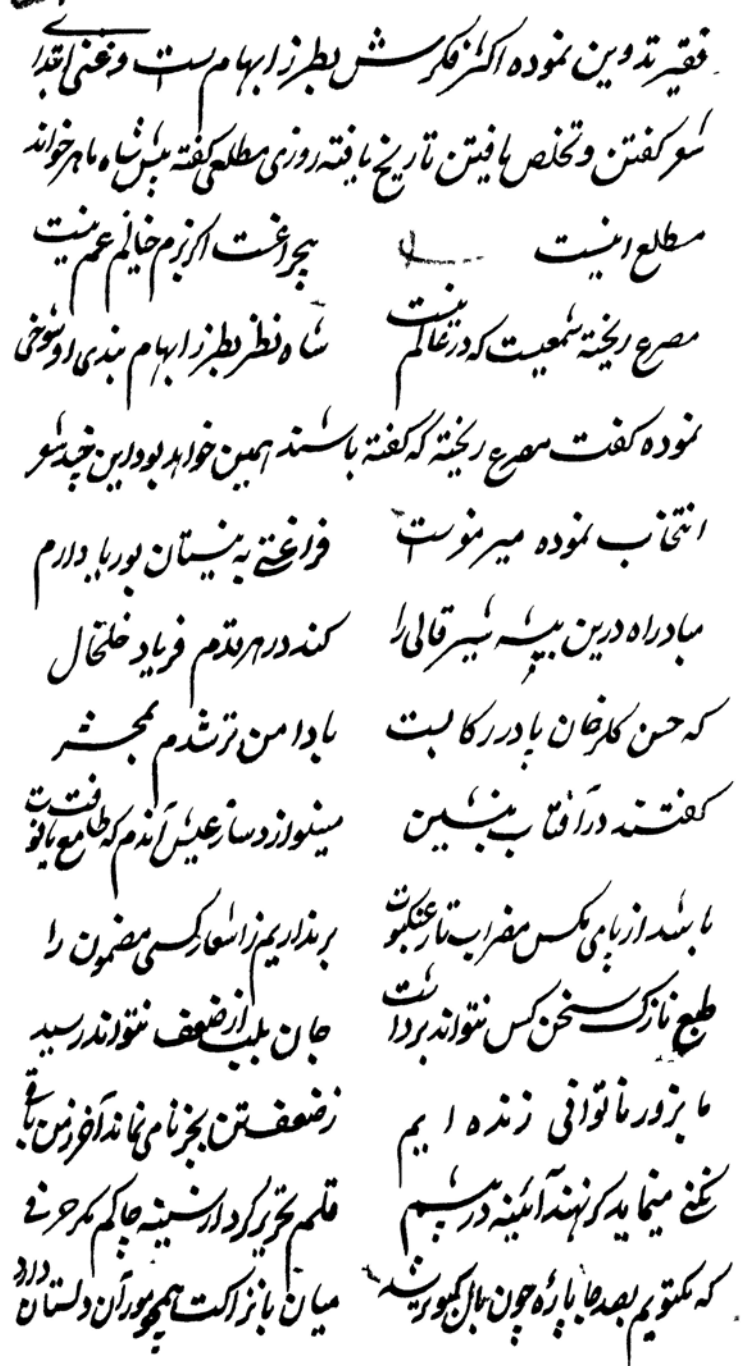 فقیر تدوین نموده اکثر فکرش بطرز ابهام است و غنی ابتدای
شعر گفتن و تخلص یافتن تاریخ یافته روزی مطلعی گفته پیش شاه ماهر خواند
مطلع اینست بیچراغست اگر بزم خیالم غم نیست
مصرع ریخته شمعیست که در عالم نیست شاه نظر بطرز ابهام بندی او شوخی
نموده گفت مصرع ریخته که گفته باشند همین خواهد بود این چند شعر
انتخاب نموده میر مغزست فراغتی به نیستان بوریا دارم
مباد راه درین بیشه شیر قالی را کند در هر قدم فریاد خلخال
که حسن گلرخان پا در رکابست با دامن تر شدم بمحشر
گفتند در آفتاب بنشین مینوازد ساز عیش آندم که طامع یافت قوت
باشد از پای مگس مضراب تار عنکبوت بر نداریم ز اشعار کسی مضمون را
طبع نازک سخن کس نتواند برداشت جان بلب از ضعف نتواند رسید
ما بزور ناتوانی زنده ایم ز ضعف تن بجز نامی نماند آخر ز من باقی
نگنی مینماید گر نهند آئینه در پیشم قلم تحریر کرد از سینه چاکم مگر حرفی
که مکتوبم بصد جا پاره چون بال کبوتر شد میان با نزاکت همچو مور آن دلستان دارد